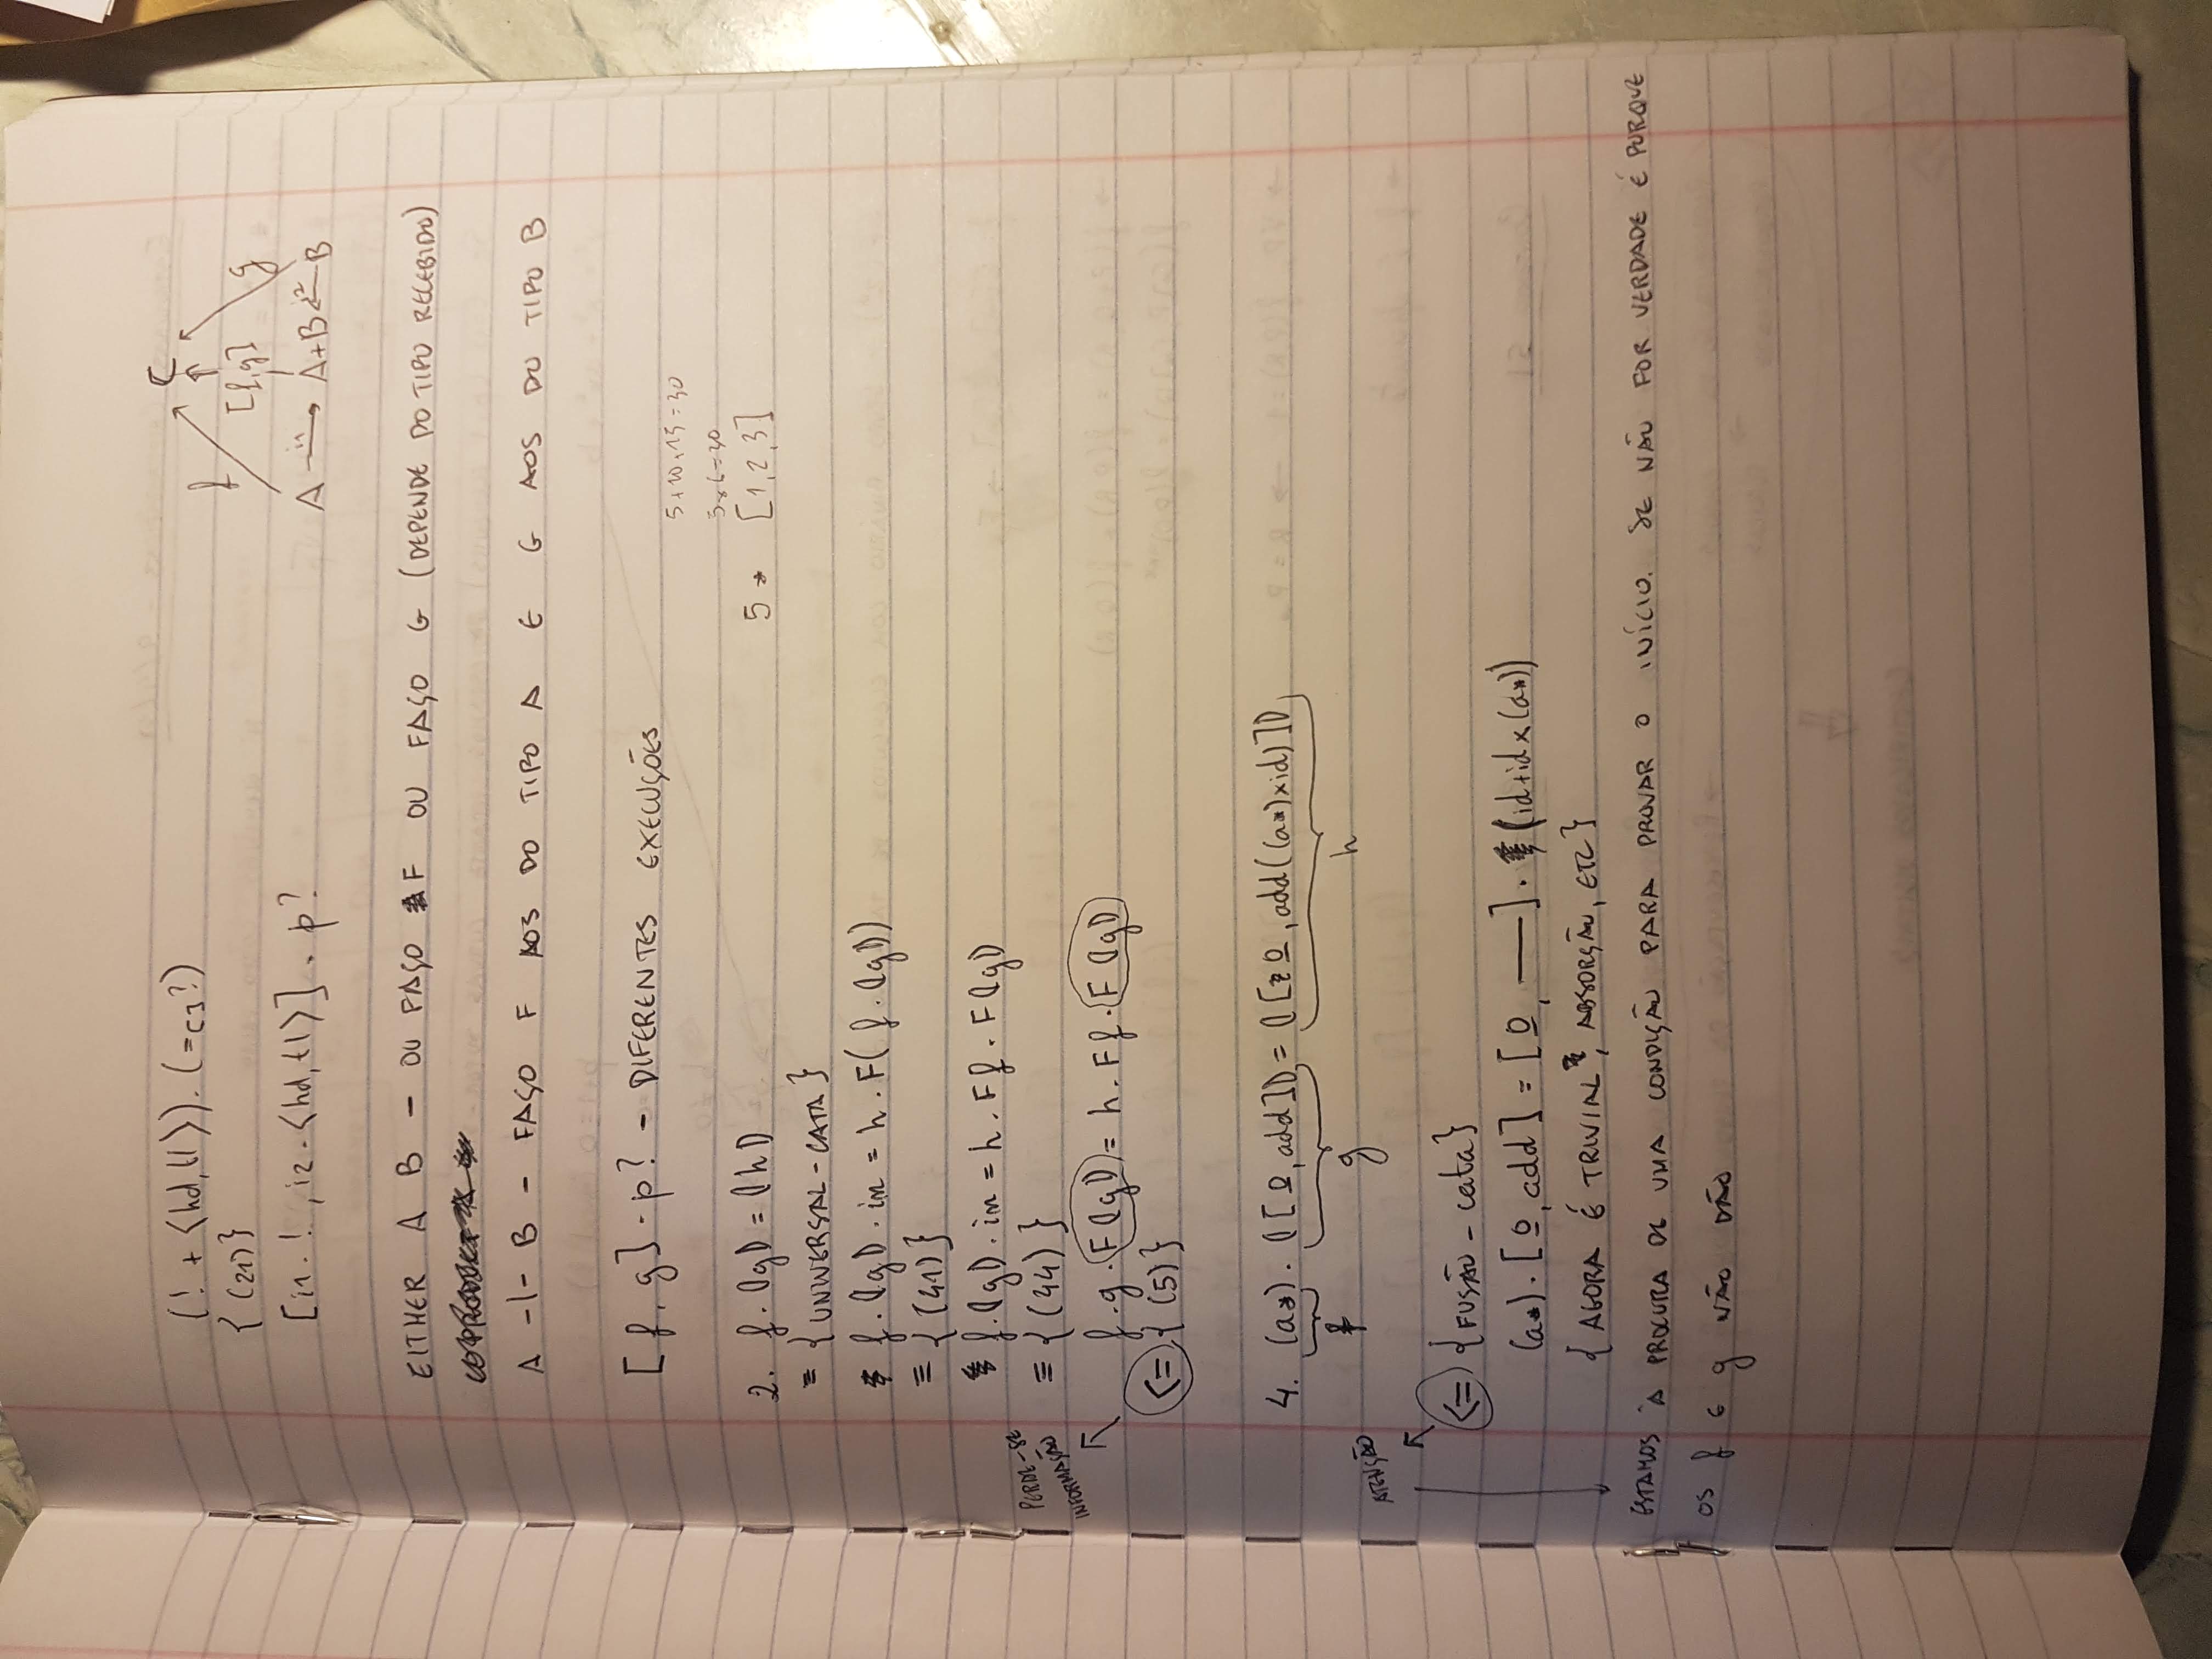 (! + ⟨hd, tl⟩) . (=[]?)
{ (21) }
[i1 . ! , i2 . ⟨hd, tl⟩] . p?
C
f [f,g] g
A i1 A+B i2 B
EITHER A B - OU FAÇO F OU FAÇO G (DEPENDE DO TIPO RECEBIDO)
A -|- B - FAÇO F AOS DO TIPO A E G AOS DO TIPO B
[f, g] . p? - DIFERENTES EXECUÇÕES
5+10+15=30
5*6=30
5 * [1,2,3]
2. f . ⦇g⦈ = ⦇h⦈
≡ { UNIVERSAL-CATA }
f . ⦇g⦈ . in = h . F( f . ⦇g⦈)
≡ { (41) }
f . ⦇g⦈ . in = h . F f . F ⦇g⦈
≡ { (44) }
f . g . F ⦇g⦈ = h . F f . F ⦇g⦈
PERDE-SE
INFORMAÇÃO
<= { (5) }
4. (a*) . ⦇[0, add]⦈ = ⦇[0, add((a*)×id)]⦈
f g h
ATENÇÃO
<= { FUSÃO - cata }
(a*) . [0, add] = [0, —] . (id+id×(a*))
{ AGORA É TRIVIAL, ABSORÇÃO, ETC }
ESTAMOS À PROCURA DE UMA CONDIÇÃO PARA PROVAR O INÍCIO. SE NÃO FOR VERDADE É PORQUE
OS f E g NÃO DÃO